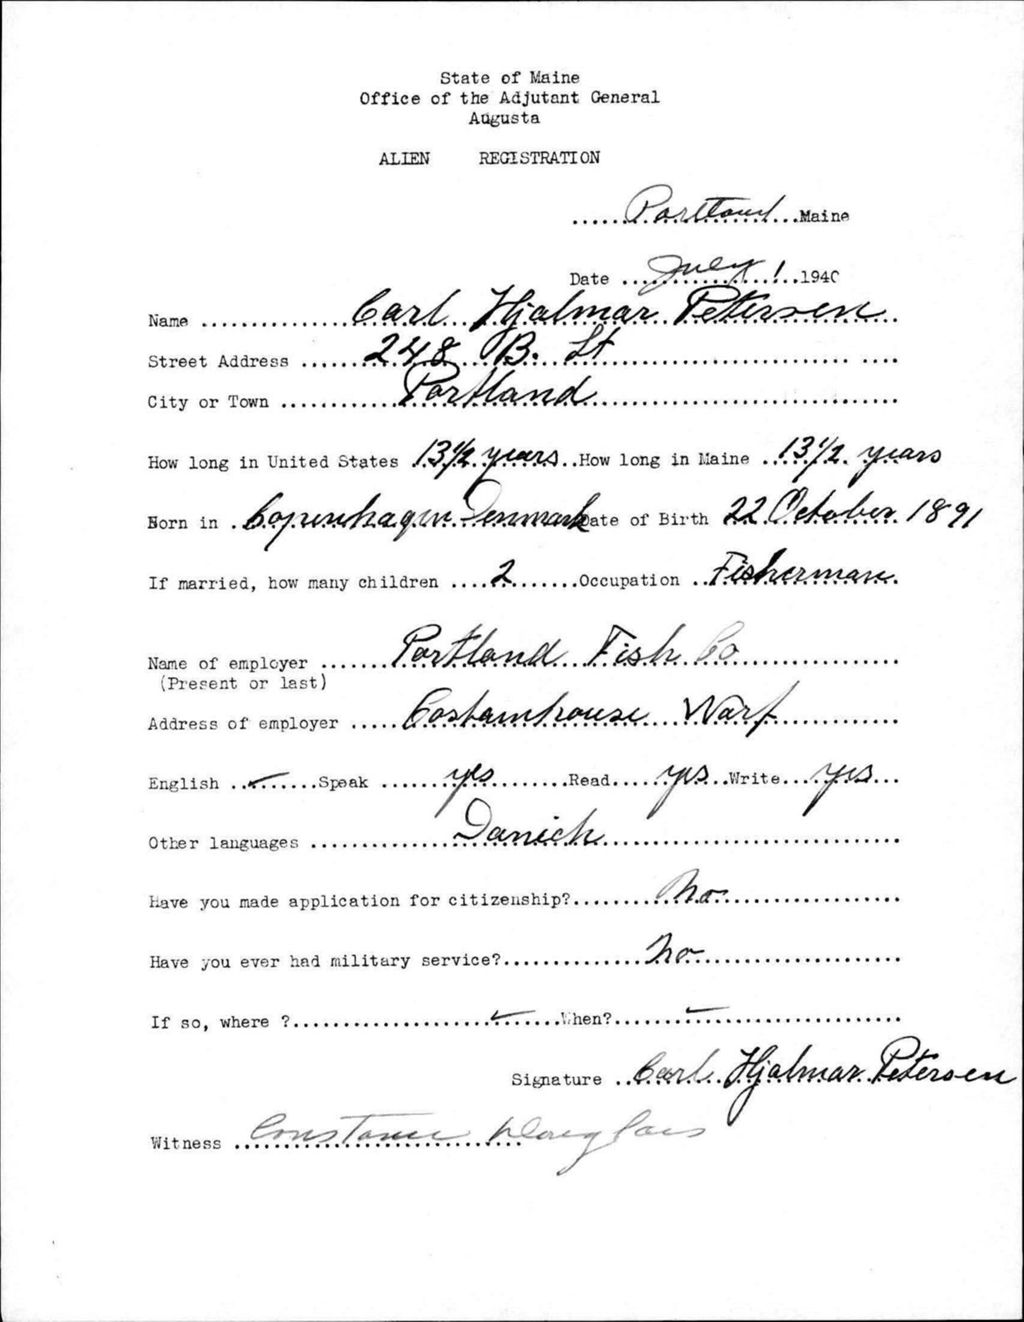 State of Maine
Office of the Adjutant General
Augusta
ALIEN REGISTRATION
.....Portland...Maine
Date ...July 1..1940
Name ...............Carl Hjalmar Petersen..
Street Address .......248 B. St.......................... ....
City or Town ............Portland................................
How long in United States .13 1/2 years..How long in Maine ..13 1/2 years
Born in .Copenhagen Denmark Date of Birth 22 October 1891
If married, how many children ....2.......Occupation ..Fisherman.
Name of employer .......Portland Fish Co.................
(Present or last)
Address of employer .....Costamhouse Warf.............
English ..✓......Speak ......yes.........Read....yes..Write...yes...
Other languages ..............Danich..............................
Have you made application for citizenship?.........No..................
Have you ever had military service?...............No...................
If so, where ?....................✓......When?.......✓...................
Signature ..Carl Hjalmar Petersen
Witness ..Constance Douglass